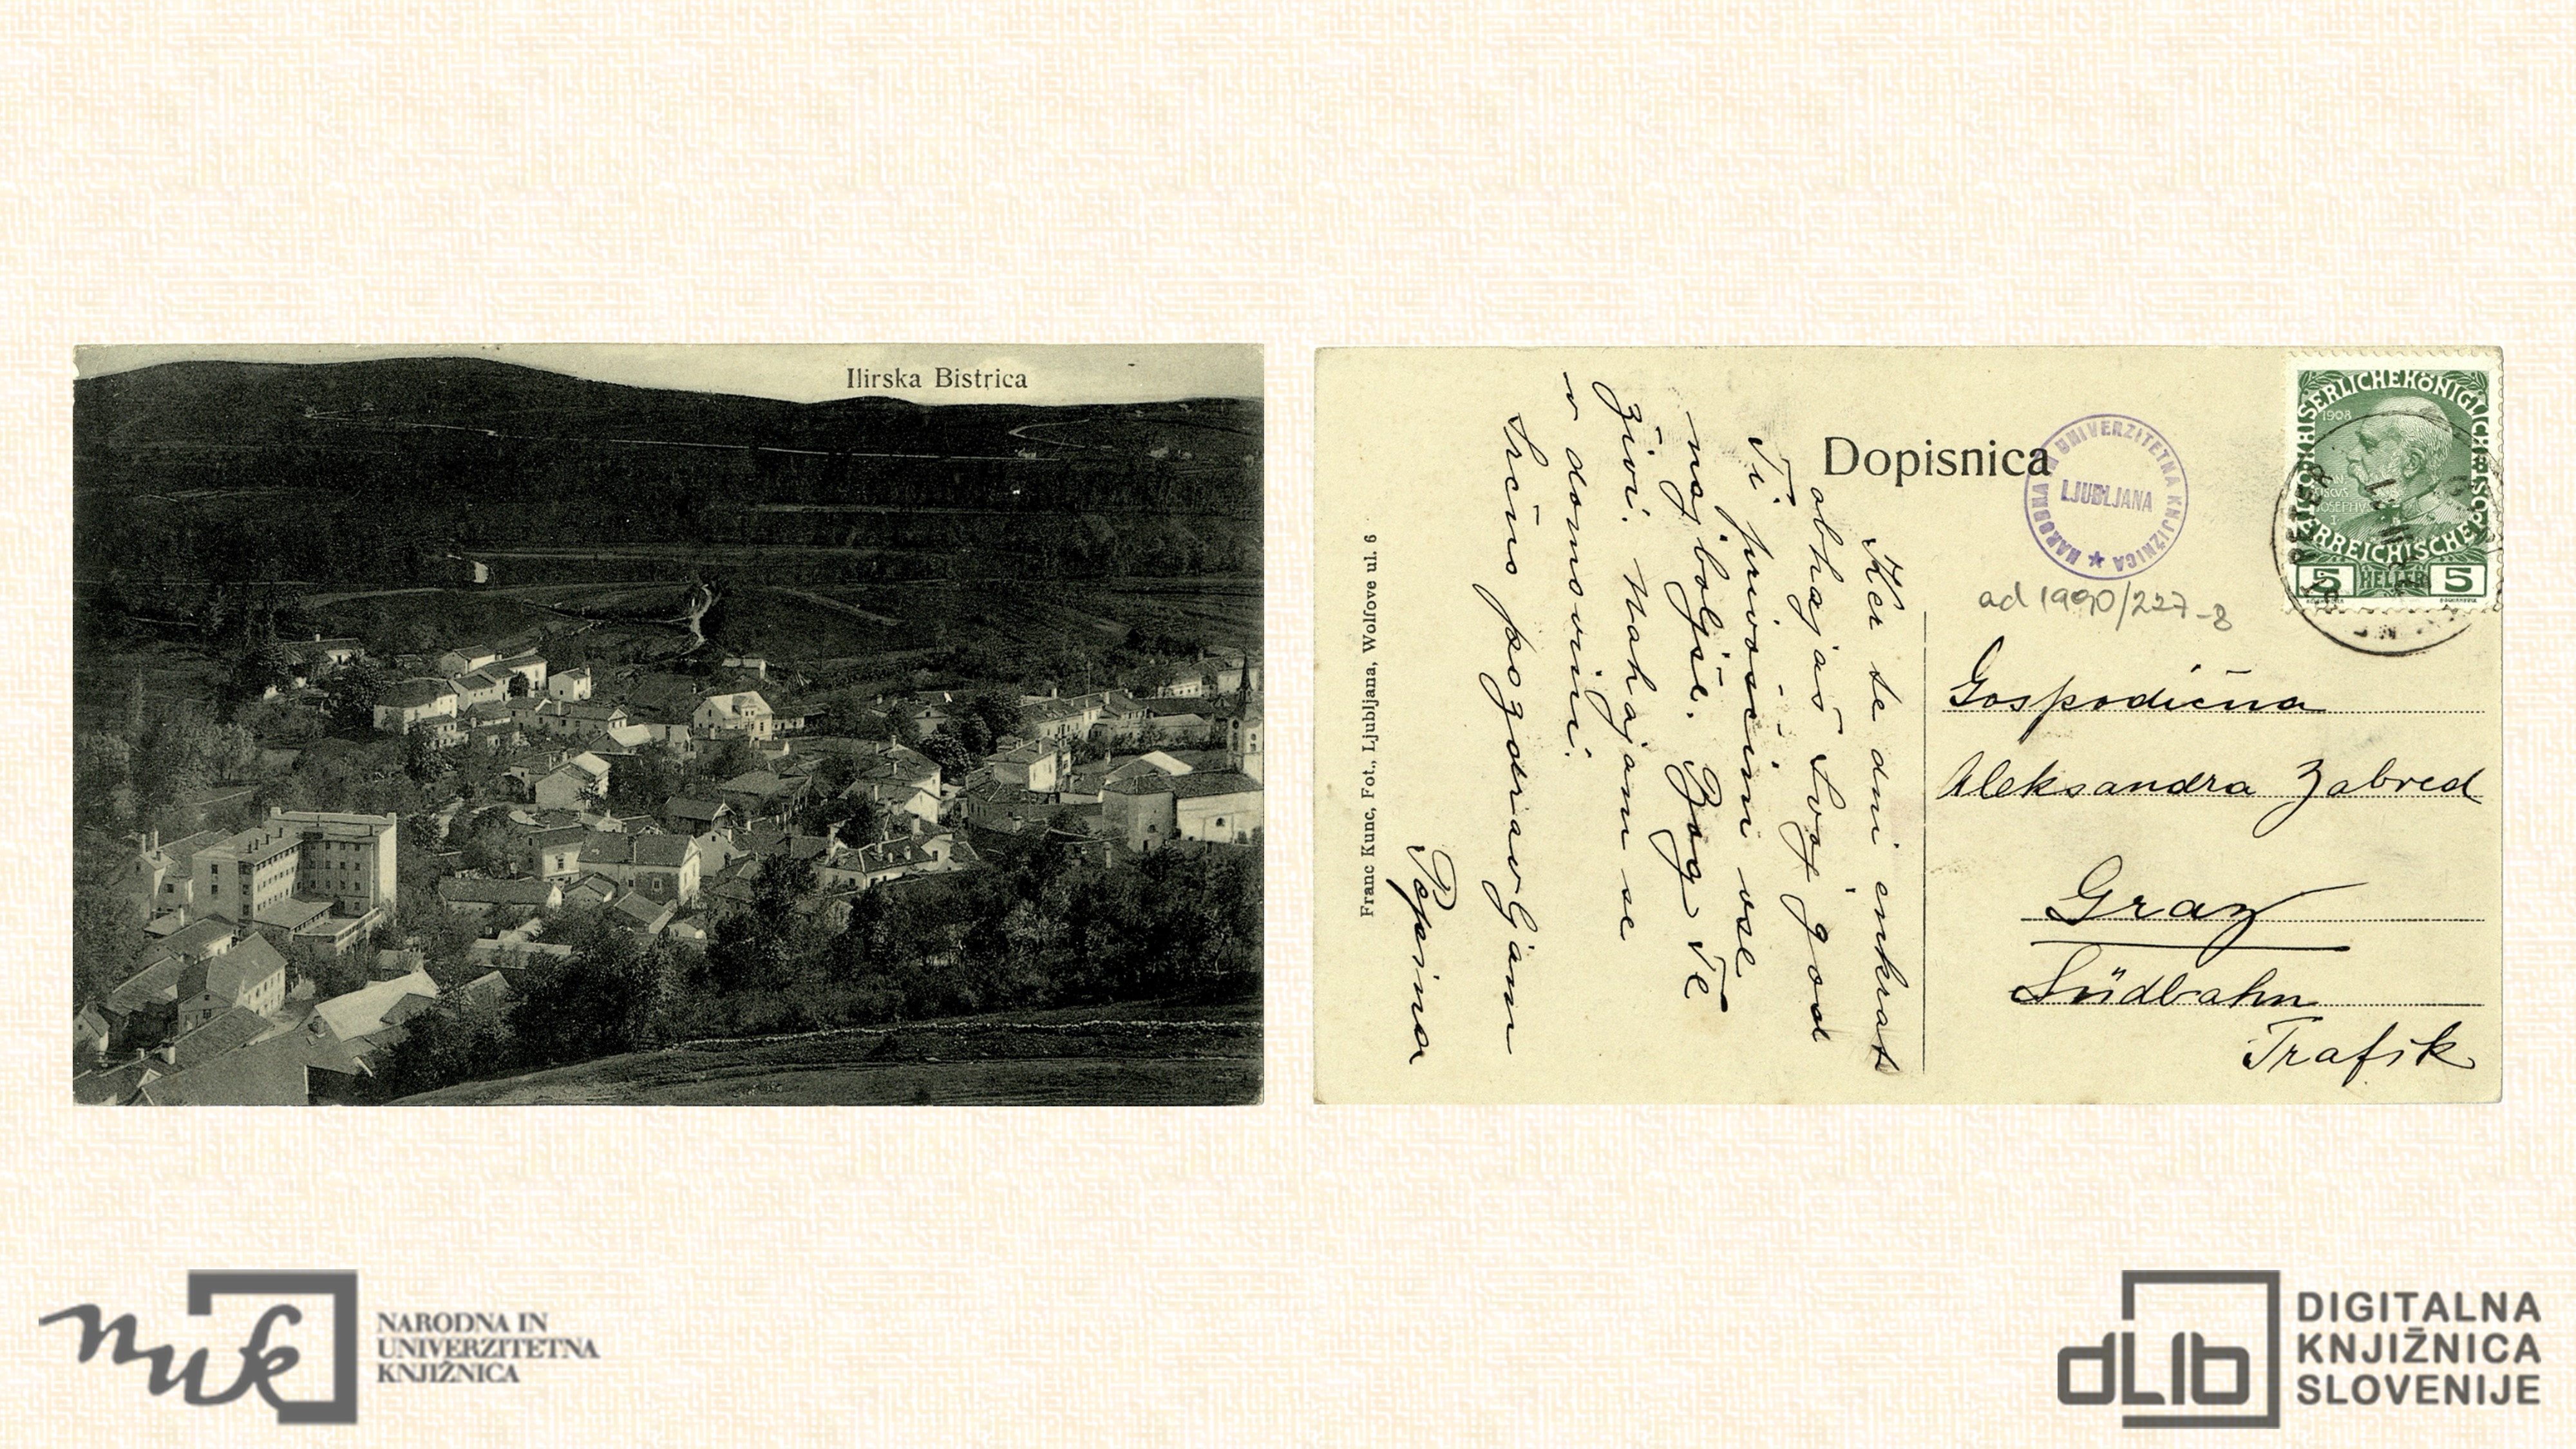 Ilirska Bistrica
Dopisnica
NARODNA IN UNIVERZITETNA KNJIŽNICA
LJUBLJANA
KAISERLICHE KÖNIGLICHE POST
ÖSTERREICHISCHE
1908
5 HELLER 5
ad 1990/227-8
Ker te dni enkrat
obhajaš Svoj god
Ti privoščim vse
najboljše. Bog Te
živi. Nahajam se
v domovini.
Srčno pozdravljam
Pepina
Franc Kunc, Fot., Ljubljana, Wolfove ul. 6
Gospodična
Aleksandra Zabred
Graz
Südbahn
Trafik
nuk
NARODNA IN
UNIVERZITETNA
KNJIŽNICA
dLib
DIGITALNA
KNJIŽNICA
SLOVENIJE